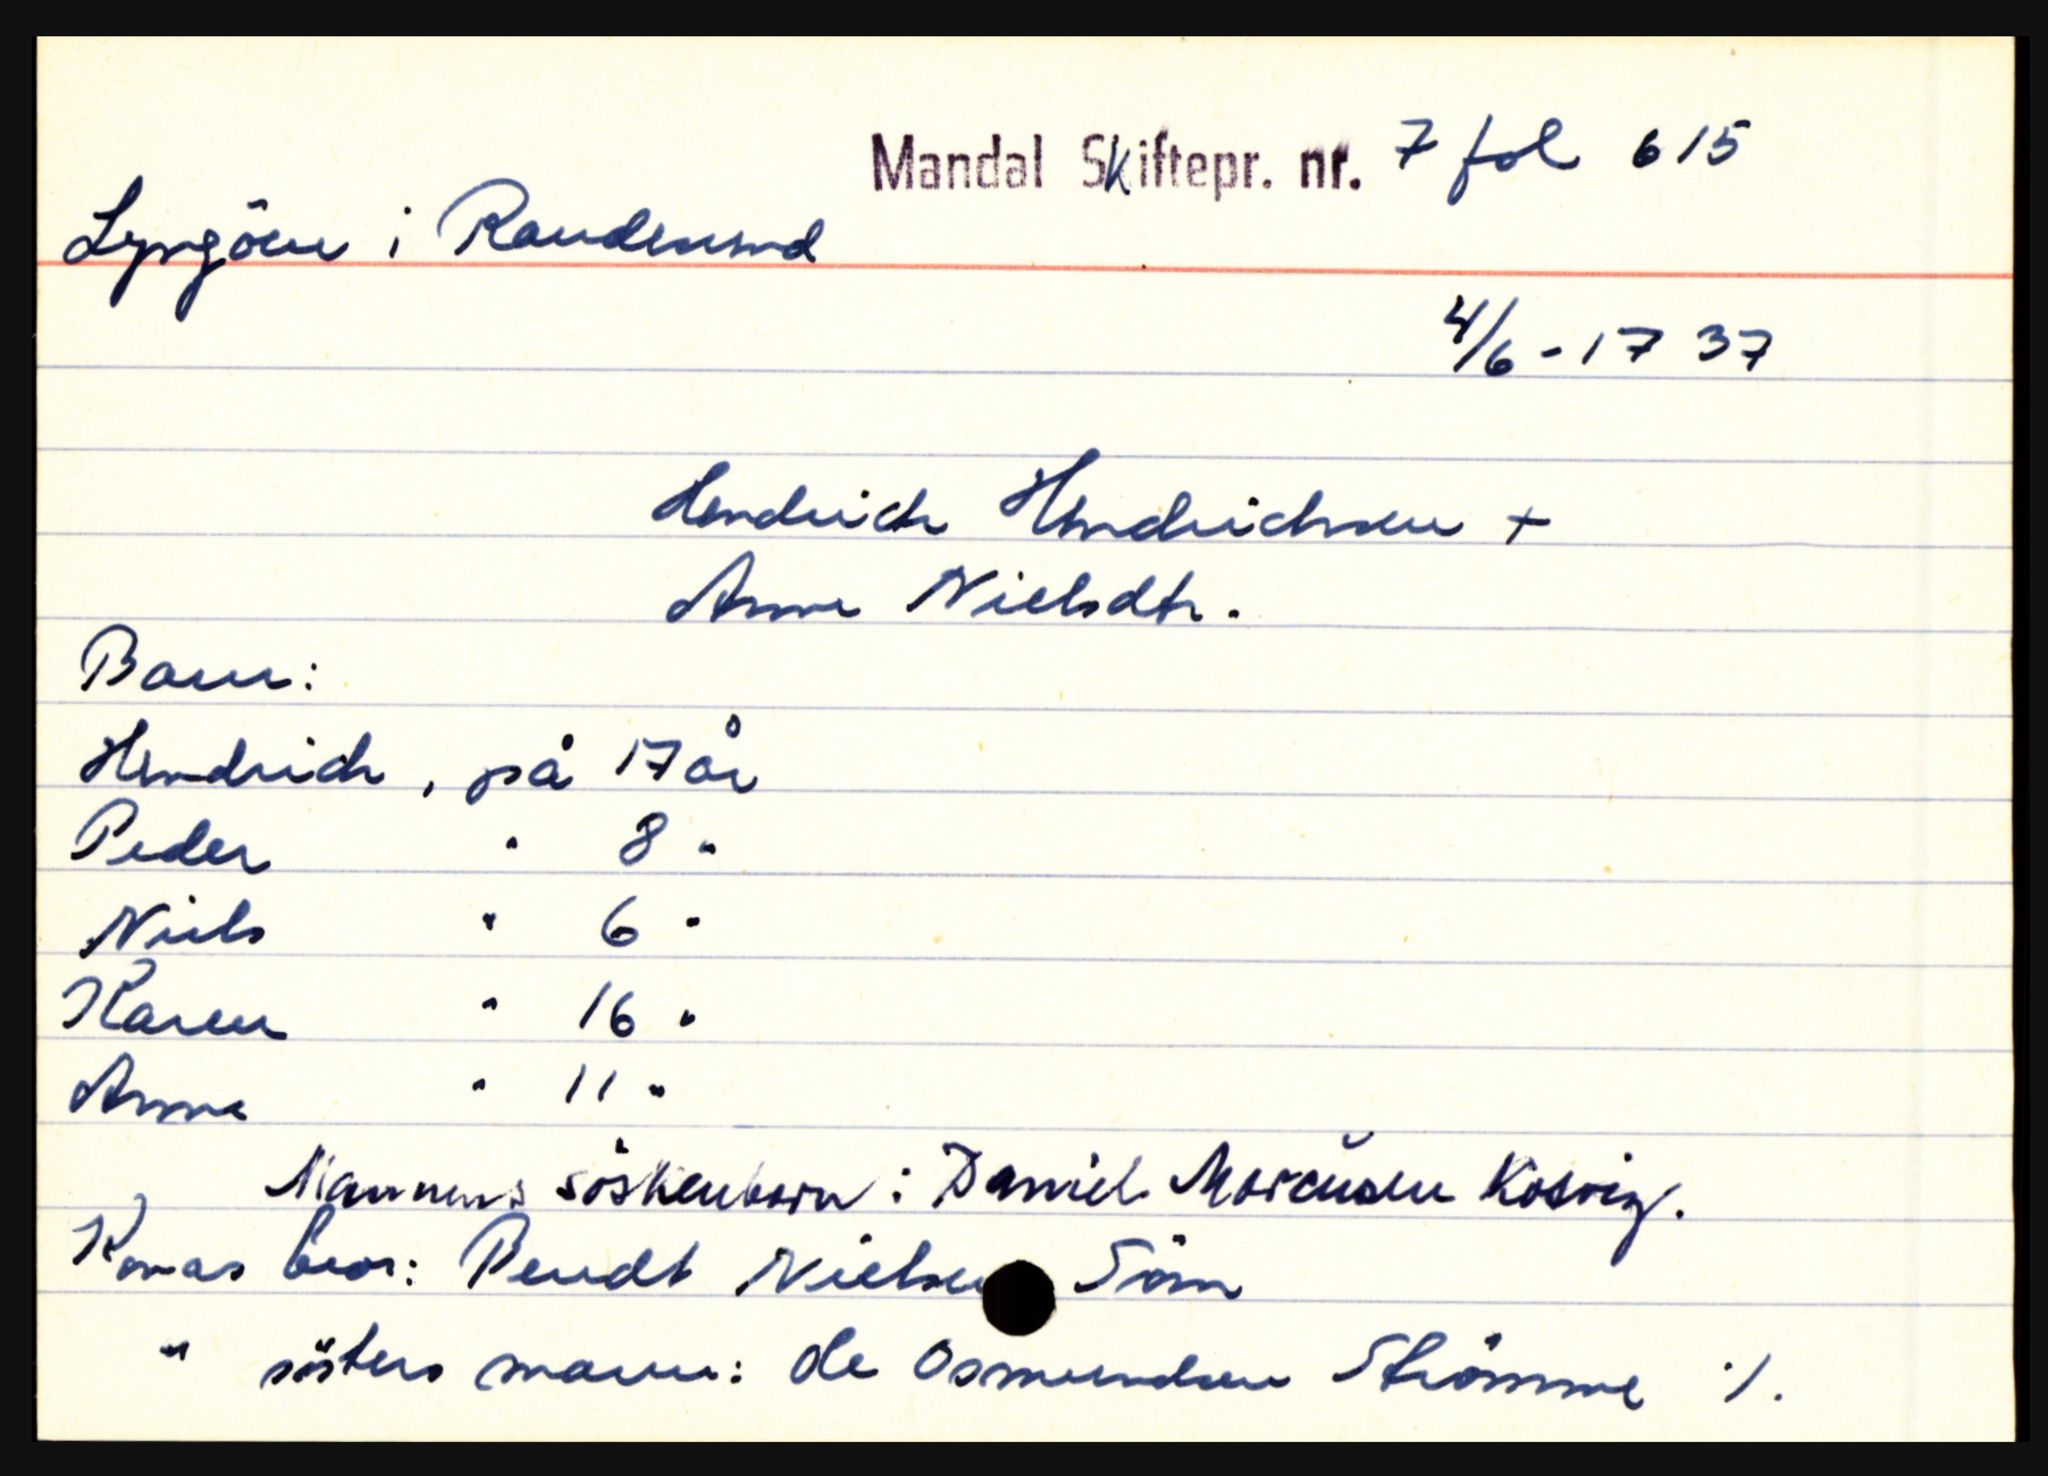 Mandal Skiftepr. nr. 7 fol 615
Lyngöen i Randesund
4/6 - 1737
Hendrich Hendrichsen +
Anne Nielsdtr.
Barn:
Hendrich, på 17 år
Peder " 8 "
Niels " 6 "
Karen " 16 "
Anne " 11 "
Mannens söskenbarn: Daniel Marcusen Kosvig.
Konas bror: Bendt Nielsen Söm
" søsters mann: Ole Osmundsen Strömme ·/.